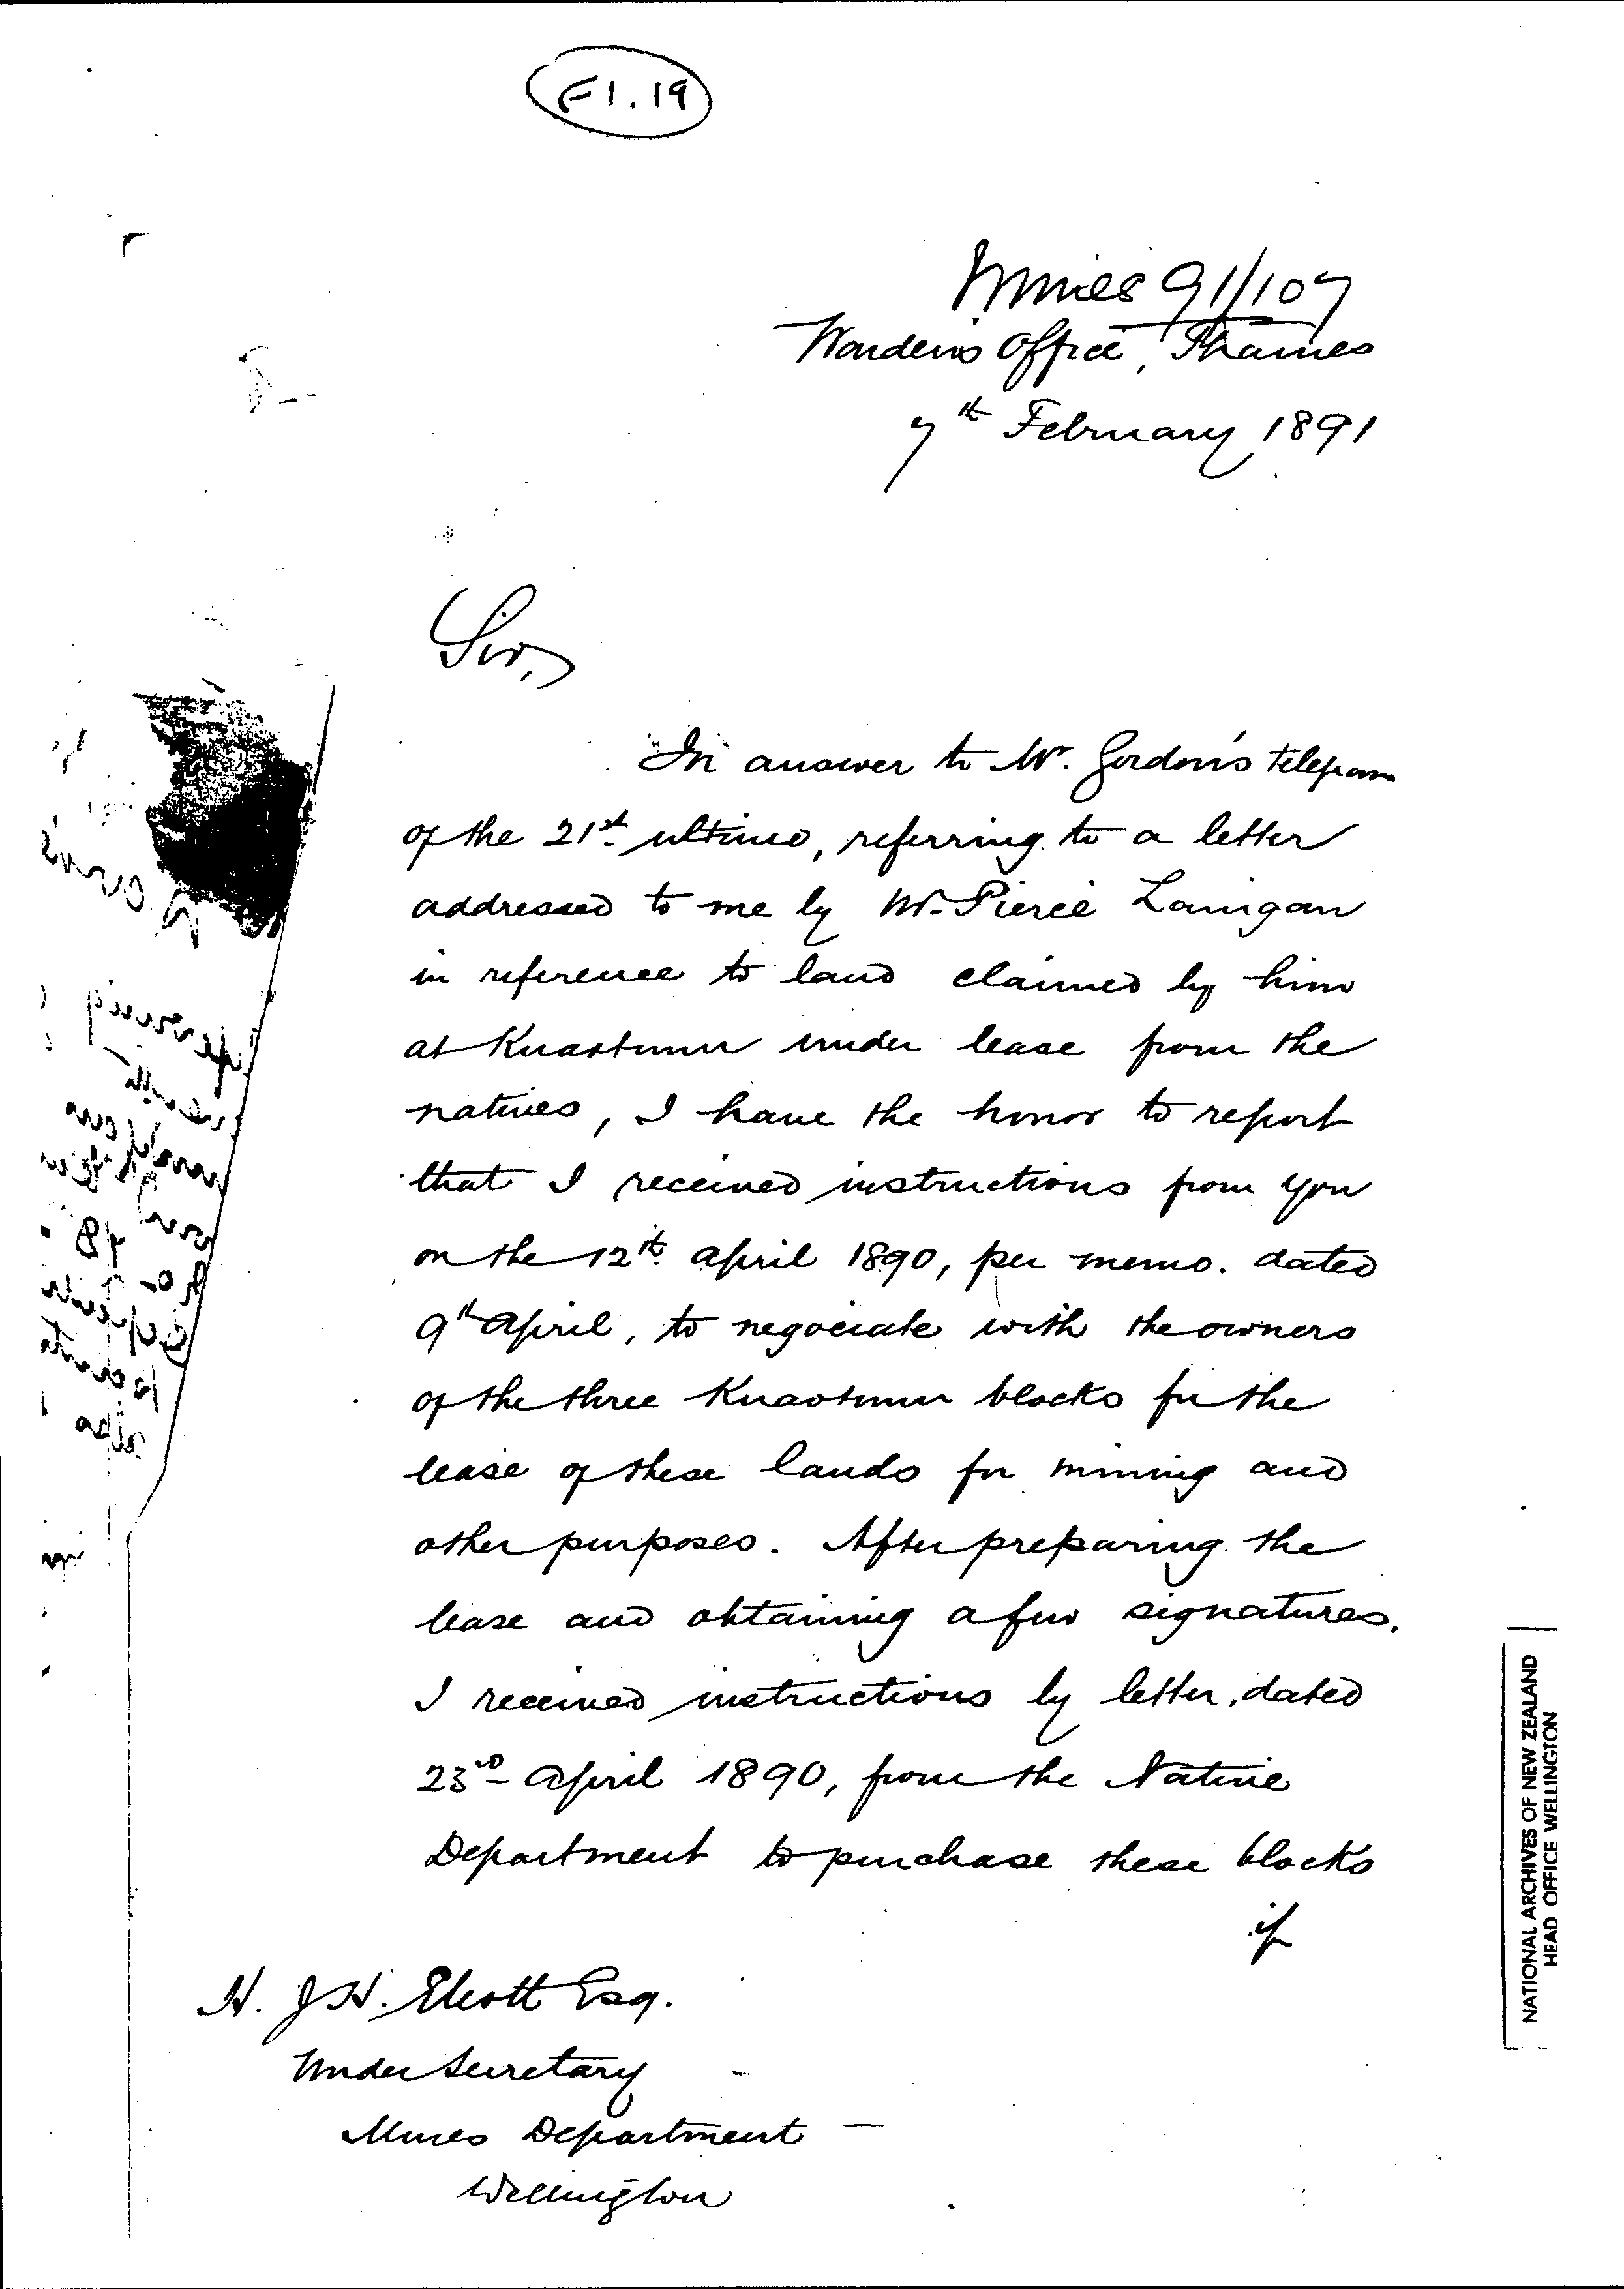 F1.19
Mines 91/107
Warden's Office, Thames
7th February 1891
Sir,
In answer to Mr. Gordon's telegram
of the 21st ultimo, referring to a letter
addressed to me by Mr. Pierce Lanigan
in reference to land claimed by him
at Kuaotunu under lease from the
natives, I have the honor to report
that I received instructions from you
on the 12th April 1890, per memo. dated
9th April, to negociate with the owners
of the three Kuaotunu blocks for the
lease of these lands for mining and
other purposes. After preparing the
lease and obtaining a few signatures,
I received instructions by letter, dated
23rd April 1890, from the Native
Department to purchase these blocks
if
H. J. H. Eliott Esq.
Under Secretary
Mines Department
Wellington
NATIONAL ARCHIVES OF NEW ZEALAND
HEAD OFFICE WELLINGTON